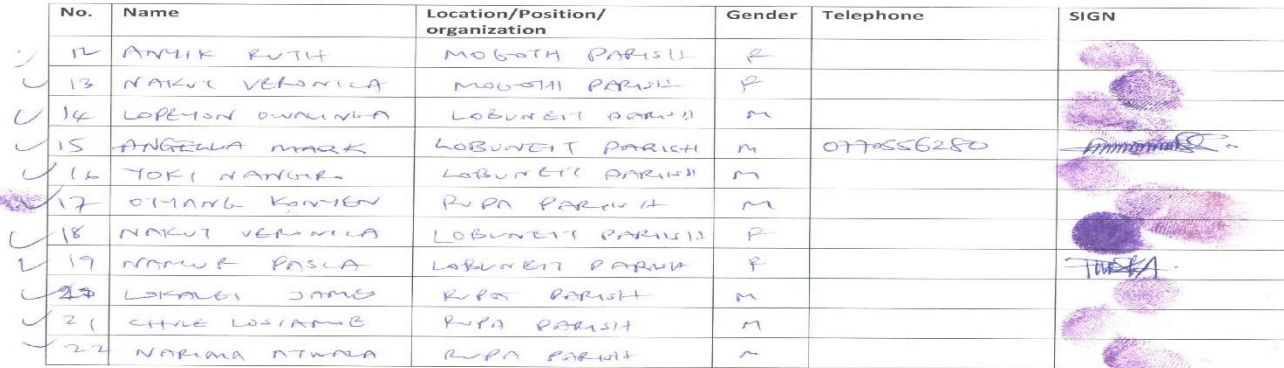 No. Name Location/Position/ organization Gender Telephone SIGN
12 ANYIK RUTH MOGOTH PARISH F
13 NAKUT VERONICA MOGOTH PARISH F
14 LOPEYON OWALINGA LOBUNEIT PARISH M
15 ANGELLA MARK LOBUNEIT PARISH M 0770556280
16 YOKI NANGIRO LOBUNEIT PARISH M
17 KONYEN RUPA PARISH M
18 NAKUT VERONICA LOBUNEIT PARISH F
19 LOBUNEIT PARISH F
JAMES RUPA PARISH M
21 RUPA PARISH M
22 RUPA PARISH M